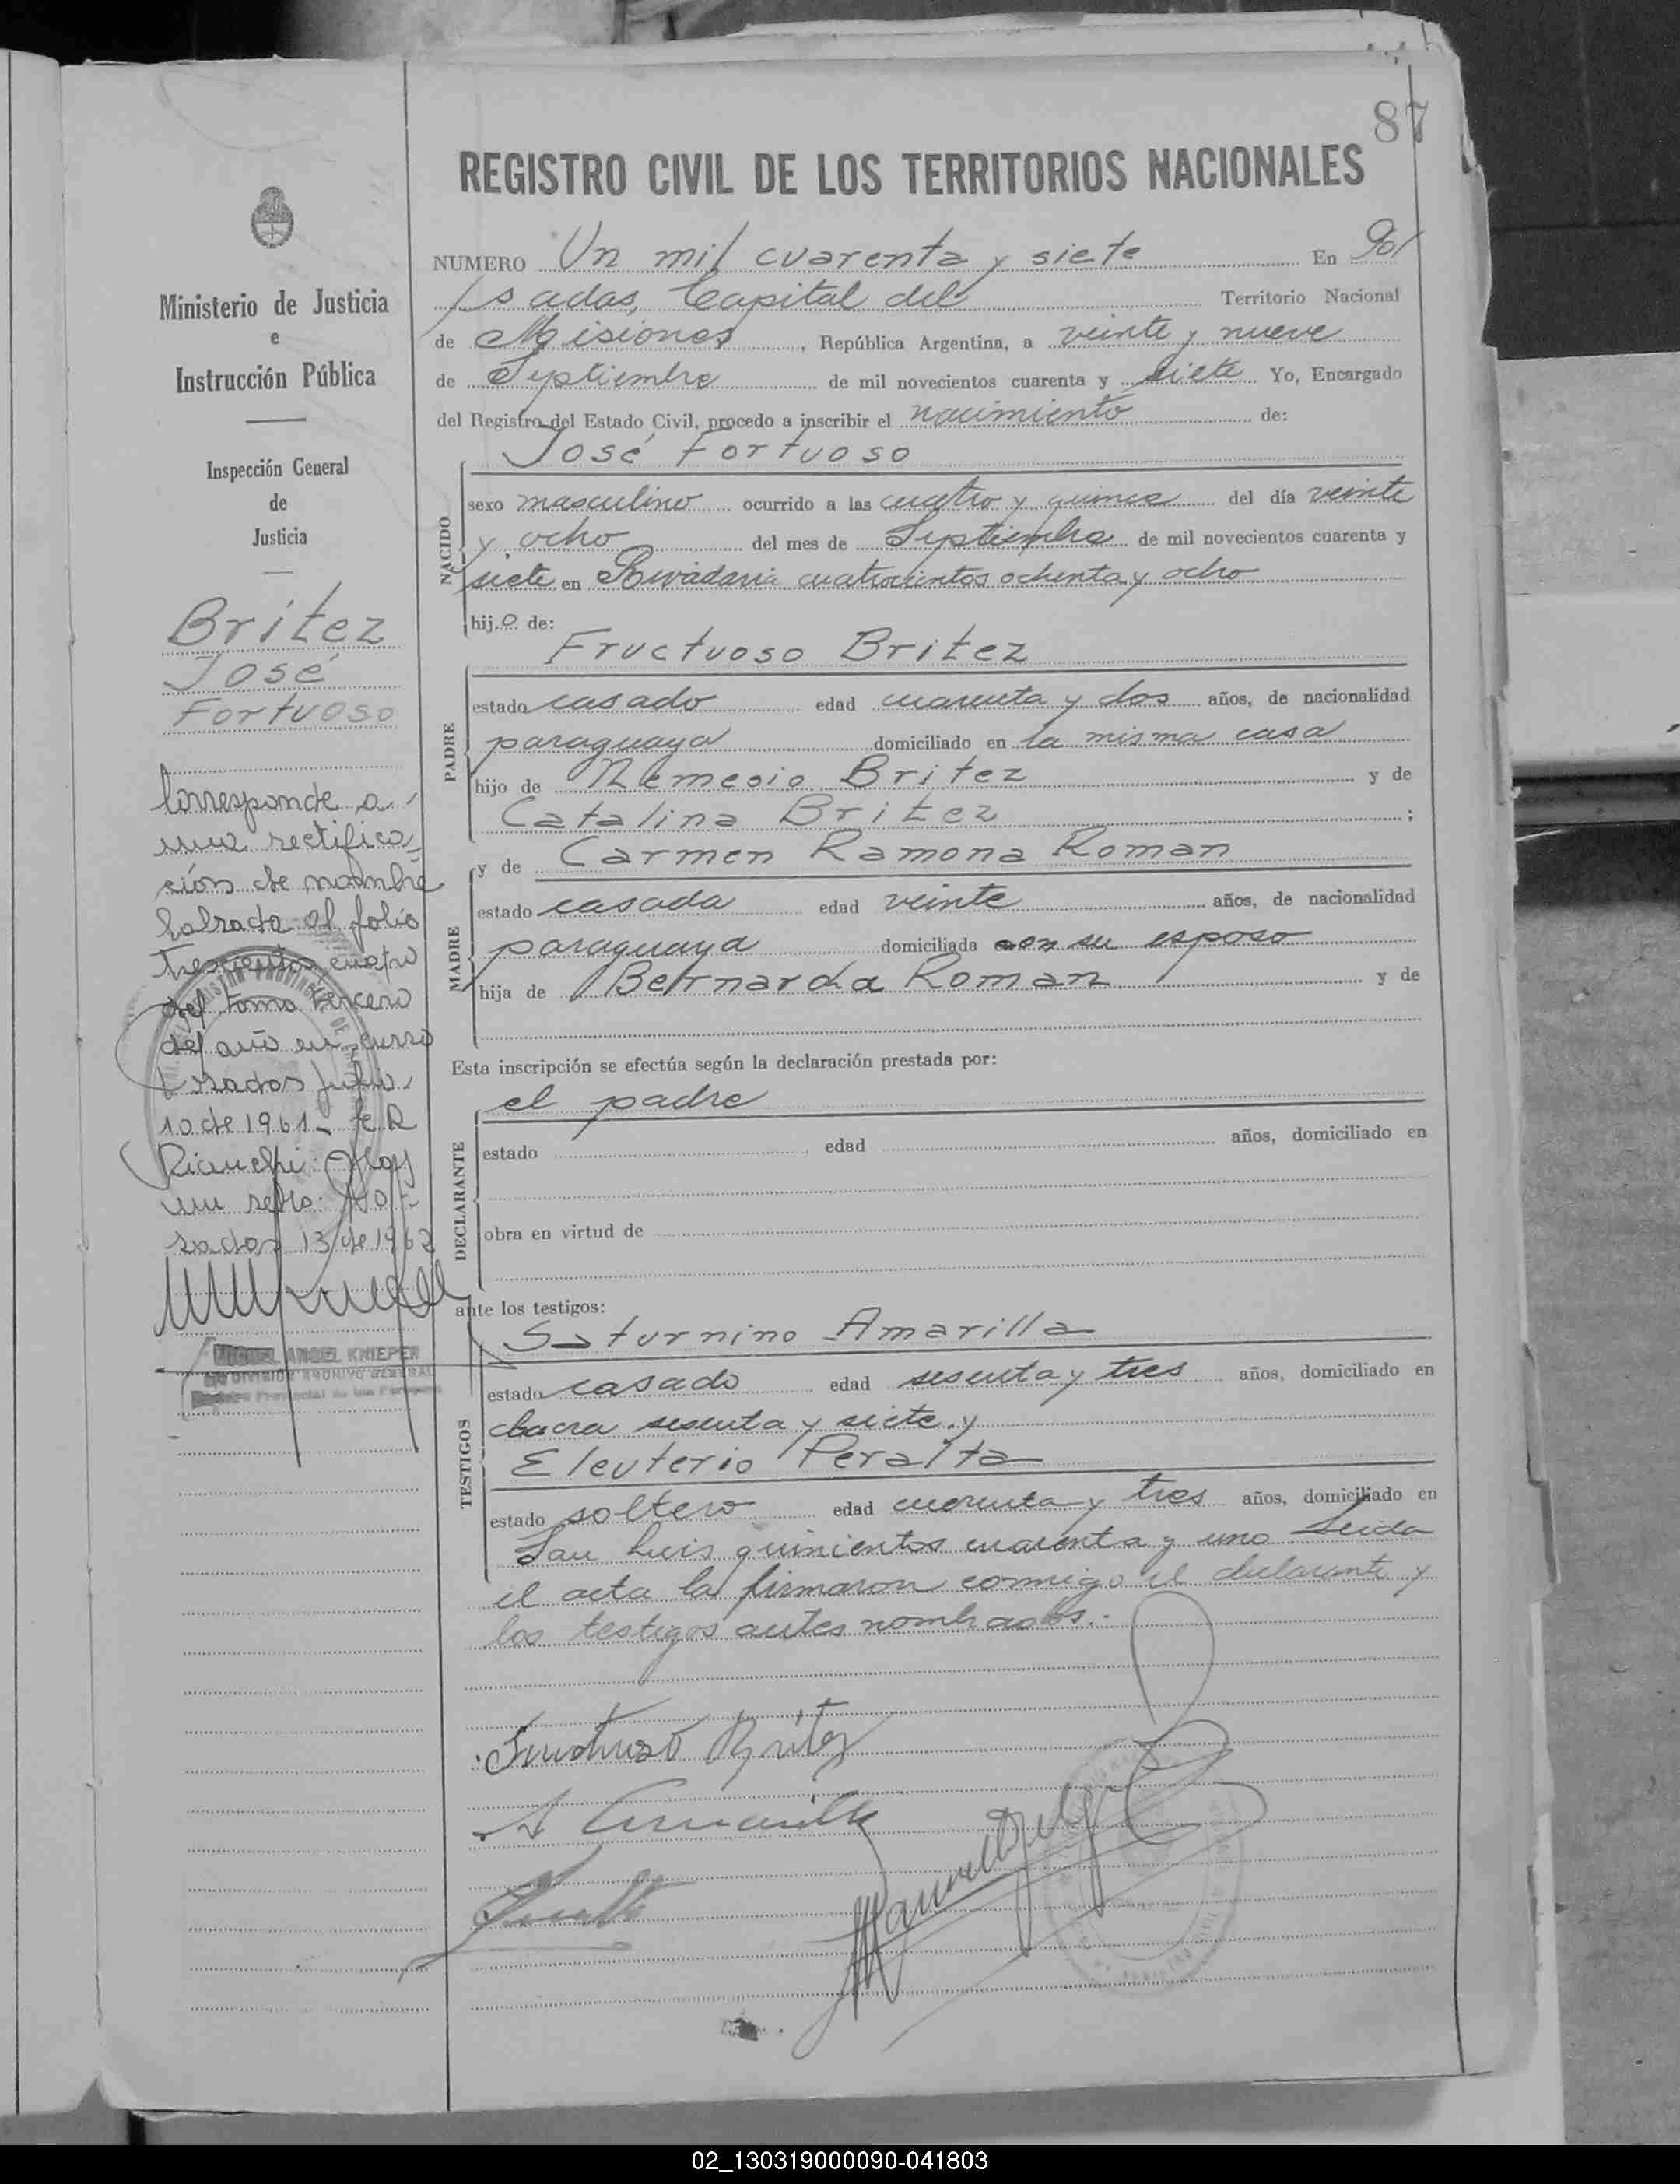 87
REGISTRO CIVIL DE LOS TERRITORIOS NACIONALES
NUMERO Un mil cuarenta y siete En Po/
sadas, Capital del Territorio Nacional
de Misiones, República Argentina, a veinte y nueve
de Septiembre de mil novecientos cuarenta y siete Yo, Encargado
del Registro del Estado Civil, procedo a inscribir el nacimiento de:
José Fortuoso
NACIDO
sexo masculino ocurrido a las cuatro y quince del día veinte
y ocho del mes de Septiembre de mil novecientos cuarenta y
siete en Rivadavia cuatrocientos ochenta y ocho
hijo de:
Fructuoso Britez
PADRE
estado casado edad cuarenta y dos años, de nacionalidad
paraguaya domiciliado en la misma casa
hijo de Nemesio Britez y de
Catalina Britez ;
y de Carmen Ramona Roman
MADRE
estado casada edad veinte años, de nacionalidad
paraguaya domiciliada con su esposo
hija de Bernarda Roman y de
Esta inscripción se efectúa según la declaración prestada por:
el padre
DECLARANTE
estado edad años, domiciliado en
obra en virtud de
ante los testigos:
Saturnino Amarilla
TESTIGOS
estado casado edad sesenta y tres años, domiciliado en
chacra sesenta y siete y
Eleuterio Peralta
estado soltero edad cuarenta y tres años, domiciliado en
San Luis quinientos cuarenta y uno Leida
el acta la firmaron conmigo el declarante y
los testigos antes nombrados.-
Fructuoso Britez
Ministerio de Justicia
e
Instrucción Pública
Inspección General
de
Justicia
Britez
José
Fortuoso
Corresponde a
una rectifica-
ción de nombre
labrada al folio
trescientos cuatro
del tomo tercero
del año en curso
Posadas Julio
10 de 1961
un sello: Po-
sadas 13 de 1962
MIGUEL ANGEL KNIEPER
DIVISION ARCHIVO GENERAL
Registro Provincial de las Personas
02_130319000090-041803